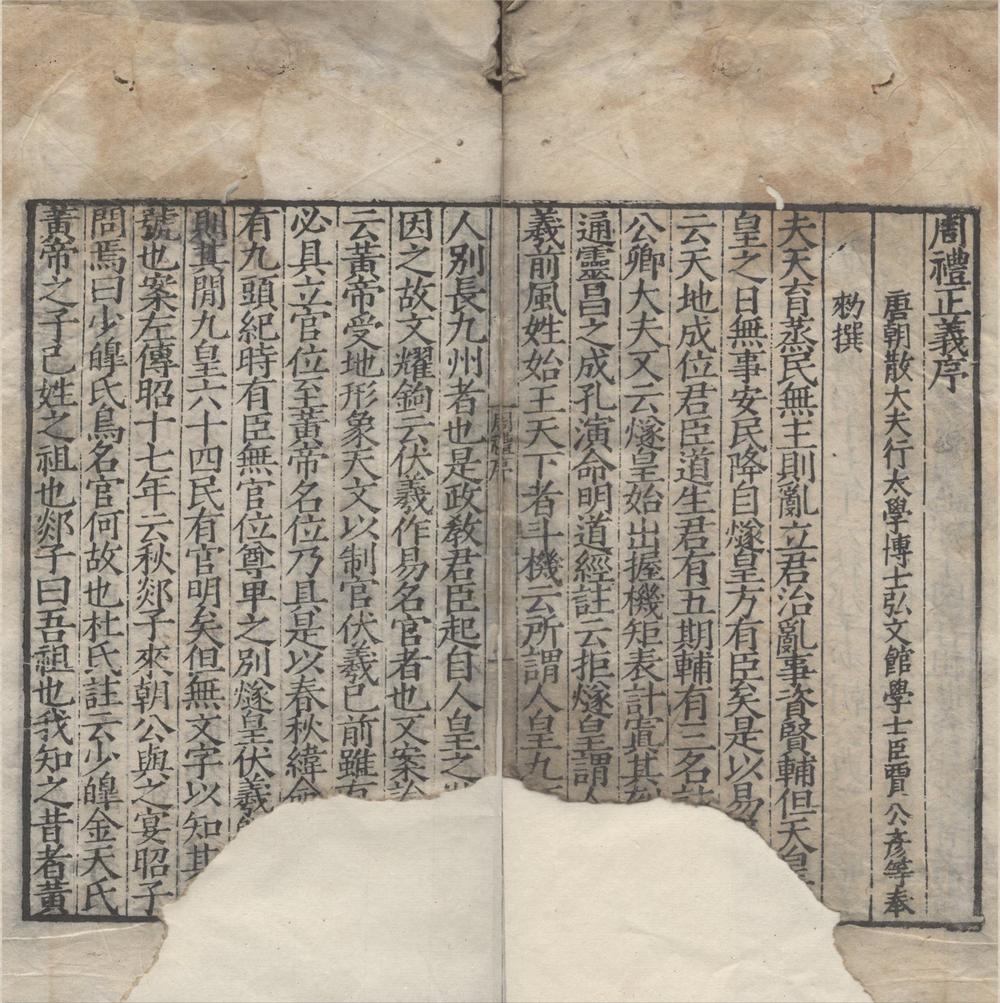 周禮正義序
唐朝散大夫行太學博士弘文館學士臣賈公彥等奉
勑撰
夫天育蒸民無主則亂立君治亂事資賢輔但天皇
皇之日無事安民降自燧皇方有臣矣是以易
云天地成位君臣道生君有五期輔有三名
公卿大夫又云燧皇始出握機矩表計寘其
通靈昌之成孔演命明道經註云拒燧皇謂人
羲前風姓始王天下者斗機云所謂人皇九
周禮序
人別長九州者也是政教君臣起自人皇之
因之故文耀鉤云伏羲作易名官者也又案
云黃帝受地形象天文以制官伏羲已前雖有
必具立官位至黃帝名位乃具是以春秋緯命
有九頭紀時有臣無官位尊卑之別燧皇伏羲
則其間九皇六十四民有官明矣但無文字以知其
號也案左傳昭十七年云秋郯子來朝公與之宴昭子
問焉曰少皥氏鳥名官何故也杜氏註云少皥金天氏
黃帝之子己姓之祖也郯子曰吾祖也我知之昔者黃